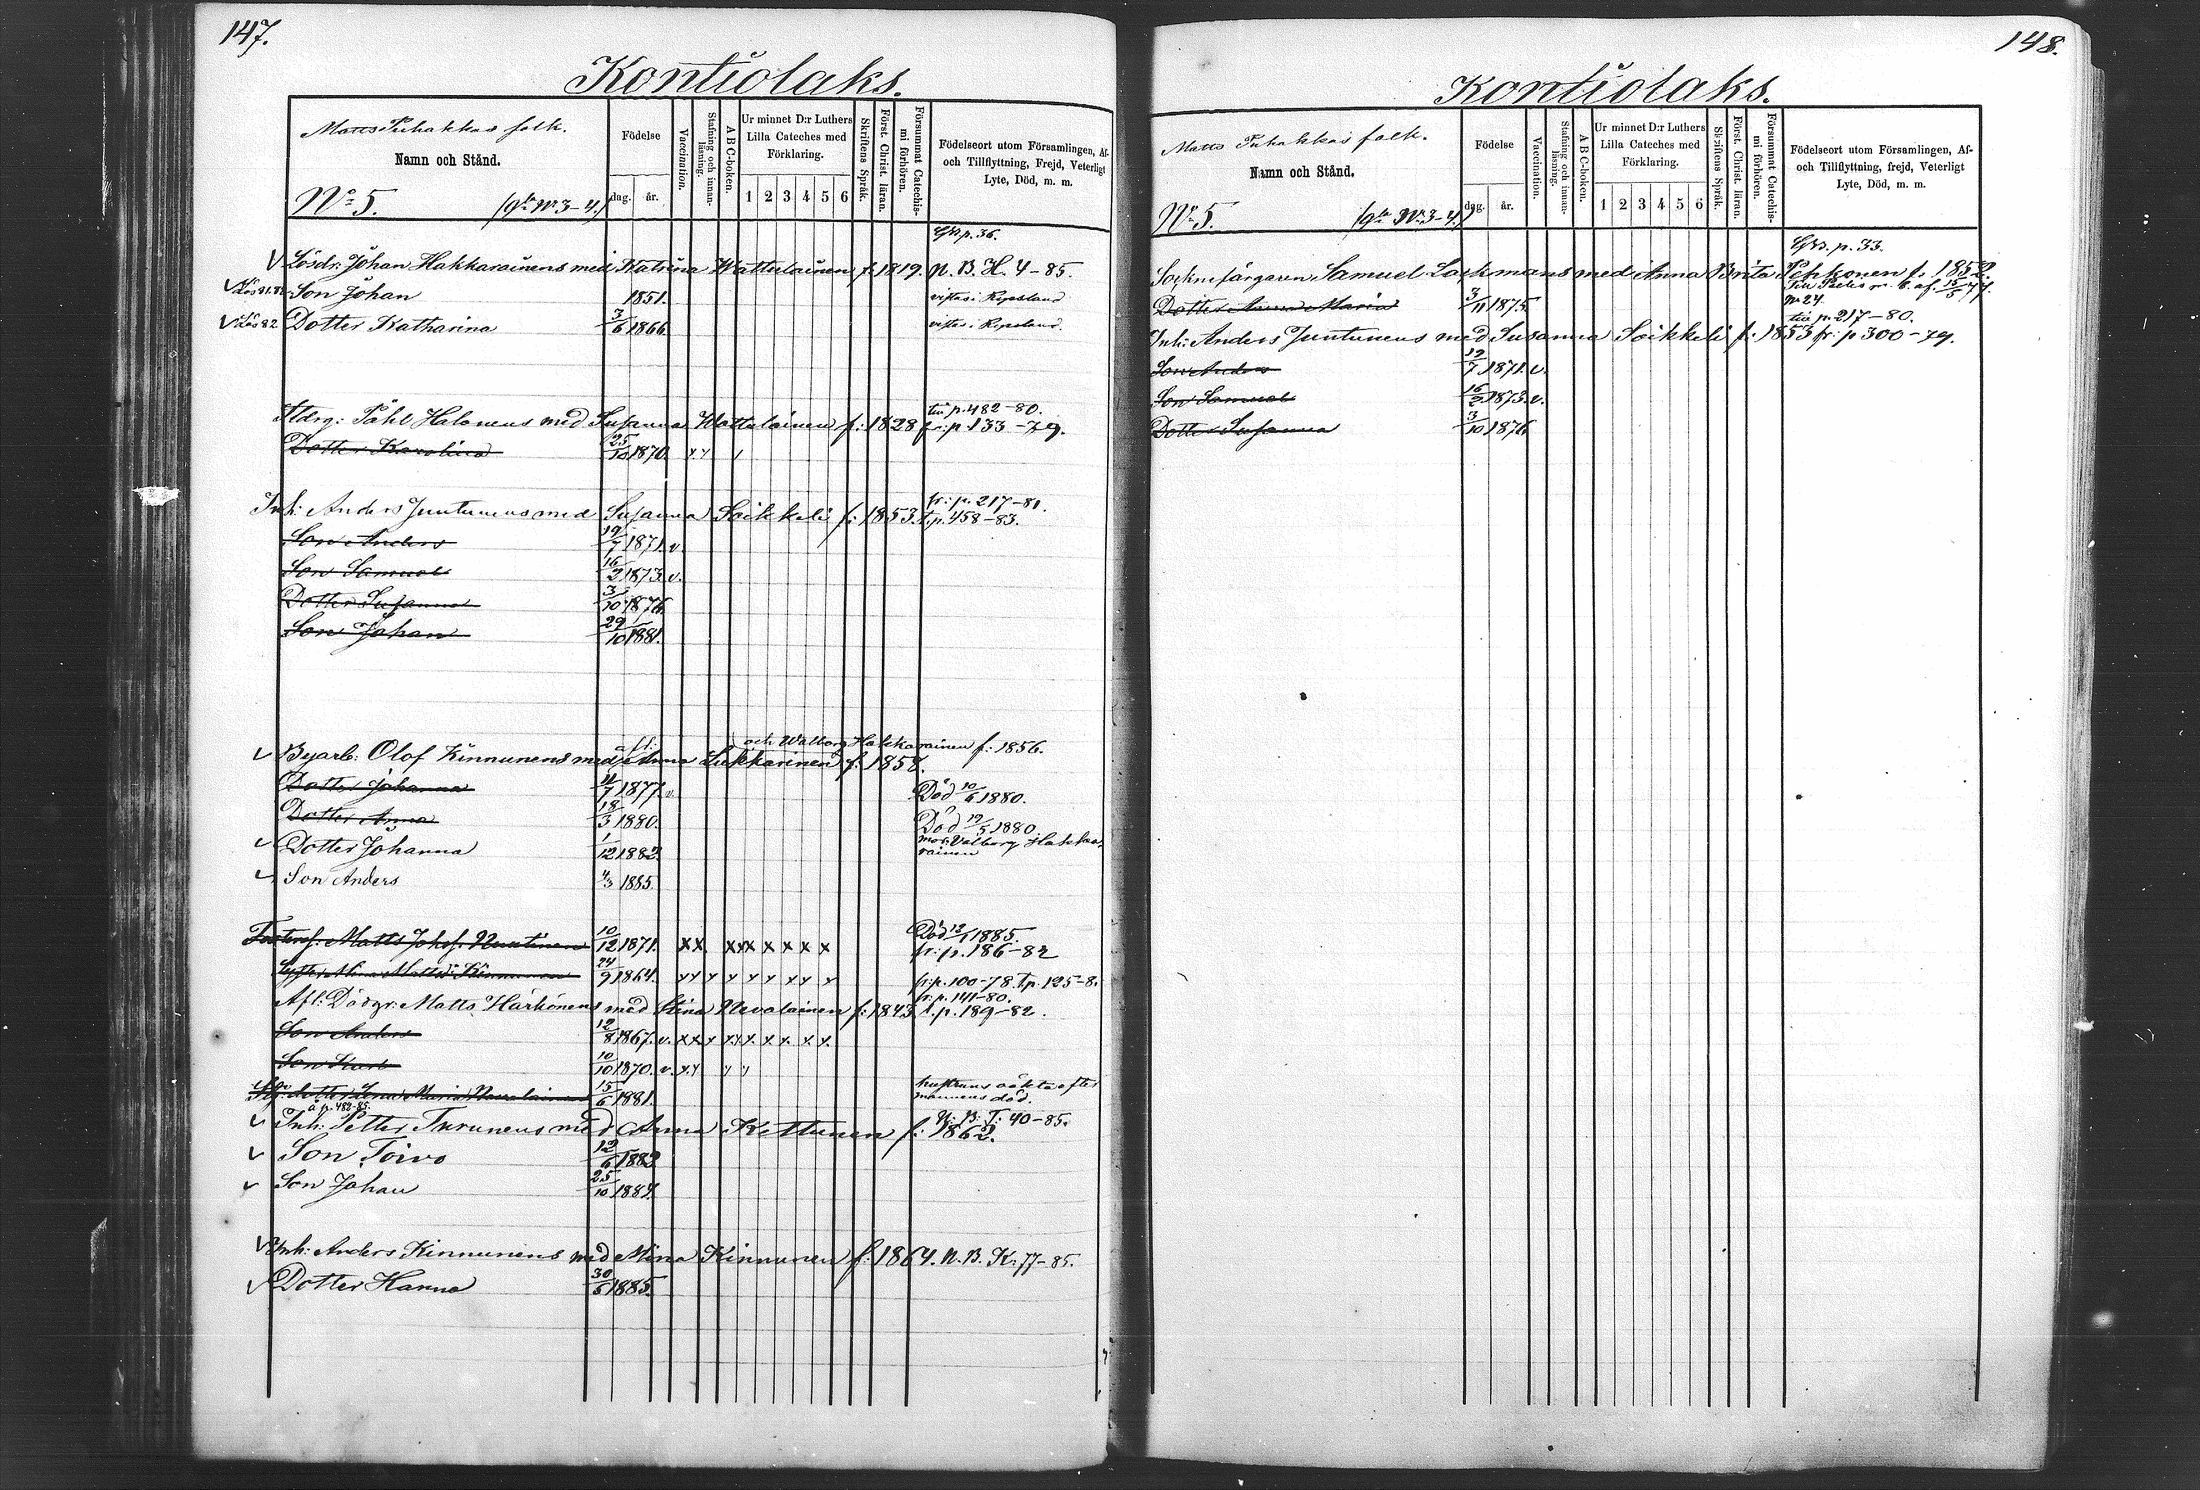 147.
Kontiolaks.
Matts Puhakkas folk.
Namn och Stånd.
No 5. (gla No 3-4.)
Födelse
dag. år.
Vaccination.
Stafning och innanläsning.
A B C-boken.
Ur minnet D:r Luthers Lilla Cateches med Förklaring.
1 2 3 4 5 6
Skriftens Språk.
Först. Christ. läran.
Försummat Catechismi förhören.
Födelseort utom Församlingen, Af- och Tillflyttning, Frejd, Veterligt Lyte, Död, m. m.
p. 36.
Lösdr: Johan Hakkarainens med Katrina Wattulainen f: 1819. N. B. H. 4-85.
Son Johan 1851. vistas i Ryssland
Dotter Katharina 3/6 1866. vistas i Ryssland.
till p. 482-80.
Påhl Halonens med Susanna Wattulainen f: 1828 fr: p. 133-79.
Dotter Karolina 25/10 1870. x x
fr: p. 217-81.
Inh: Anders Juntunens med Susanna Soikkeli f: 1853. t. p. 458-83.
Son Anders 19/7 1871. v.
Son Samuel 16/2 1873. v.
Dotter Susanna 3/10 1876.
Son Johan 29/10 1881.
afl: och Walborg Hakkarainen f: 1856.
Byarb: Olof Kinnunens med Anna Lukkarinen f: 1858.
Dotter Johanna 11/7 1877. v. Död 10/6 1880.
Dotter Anna 18/3 1880. Död 19/5 1880.
Dotter Johanna 1/12 1882. mor: Valborg Hakkarainen
Son Anders 4/3 1885.
Fosters. Matts Johsf. Nuutinen 10/12 1871. x x x x x x x x x Död 12/1 1885. fr: p. 186-82
Mina Mattsdr Kinnunen 24/9 1864. x x x x x x x x x fr: p. 100-78. t. p. 125-8.
fr: p. 141-80.
Afl: Dödgr: Matts Härkönens med Stina Nevalainen f: 1843. t. p. 189-82.
Son Anders 12/8 1867. v. x x x x x x x x x
Son 10/10 1870. v. x x x x
dotter Lena Maria Nevalainen 15/6 1881. hustruns oäkta efter mannens död.
å p. 482-85. N: B: T: 40-85.
Inh: Petter Turunens med Anna Kettunen f: 1862.
Son Toivo 12/6 1883
Son Johan 25/10 1884.
Inh: Anders Kinnunens med Mina Kinnunen f: 1864. N. B. K: 77-85.
Dotter Hanna 30/5 1885.
148.
Kontiolaks.
Matts Puhakkas folk.
Namn och Stånd.
No 5. (gla No 3-4.)
Födelse
dag. år.
Vaccination.
Stafning och innanläsning.
A B C-boken.
Ur minnet D:r Luthers Lilla Cateches med Förklaring.
1 2 3 4 5 6
Skriftens Språk.
Först. Christ. läran.
Försummat Catechismi förhören.
Födelseort utom Församlingen, Af- och Tillflyttning, frejd, Veterligt Lyte, Död, m. m.
p. 33.
Socknefärgaren Samuel Lackmans med Anna Brita Pehkonen f: 1852.
Dotter Anna Maria 3/11 1875. Till Pielis m. b. af. 15/5 77. No 24.
till p. 217-80.
Inh: Anders Juntunens med Susanna Soikkeli f: 1853 fr: p 300-79.
Son Anders 19/7 1871. v.
Son Samuel 16/2 1873. v.
Dotter Susanna 3/10 1876